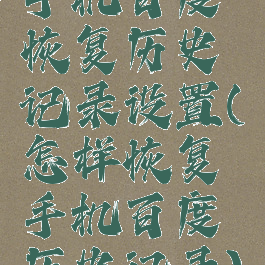 手机百度
恢复历史
记录设置(
怎样恢复
手机百度
历史记录)